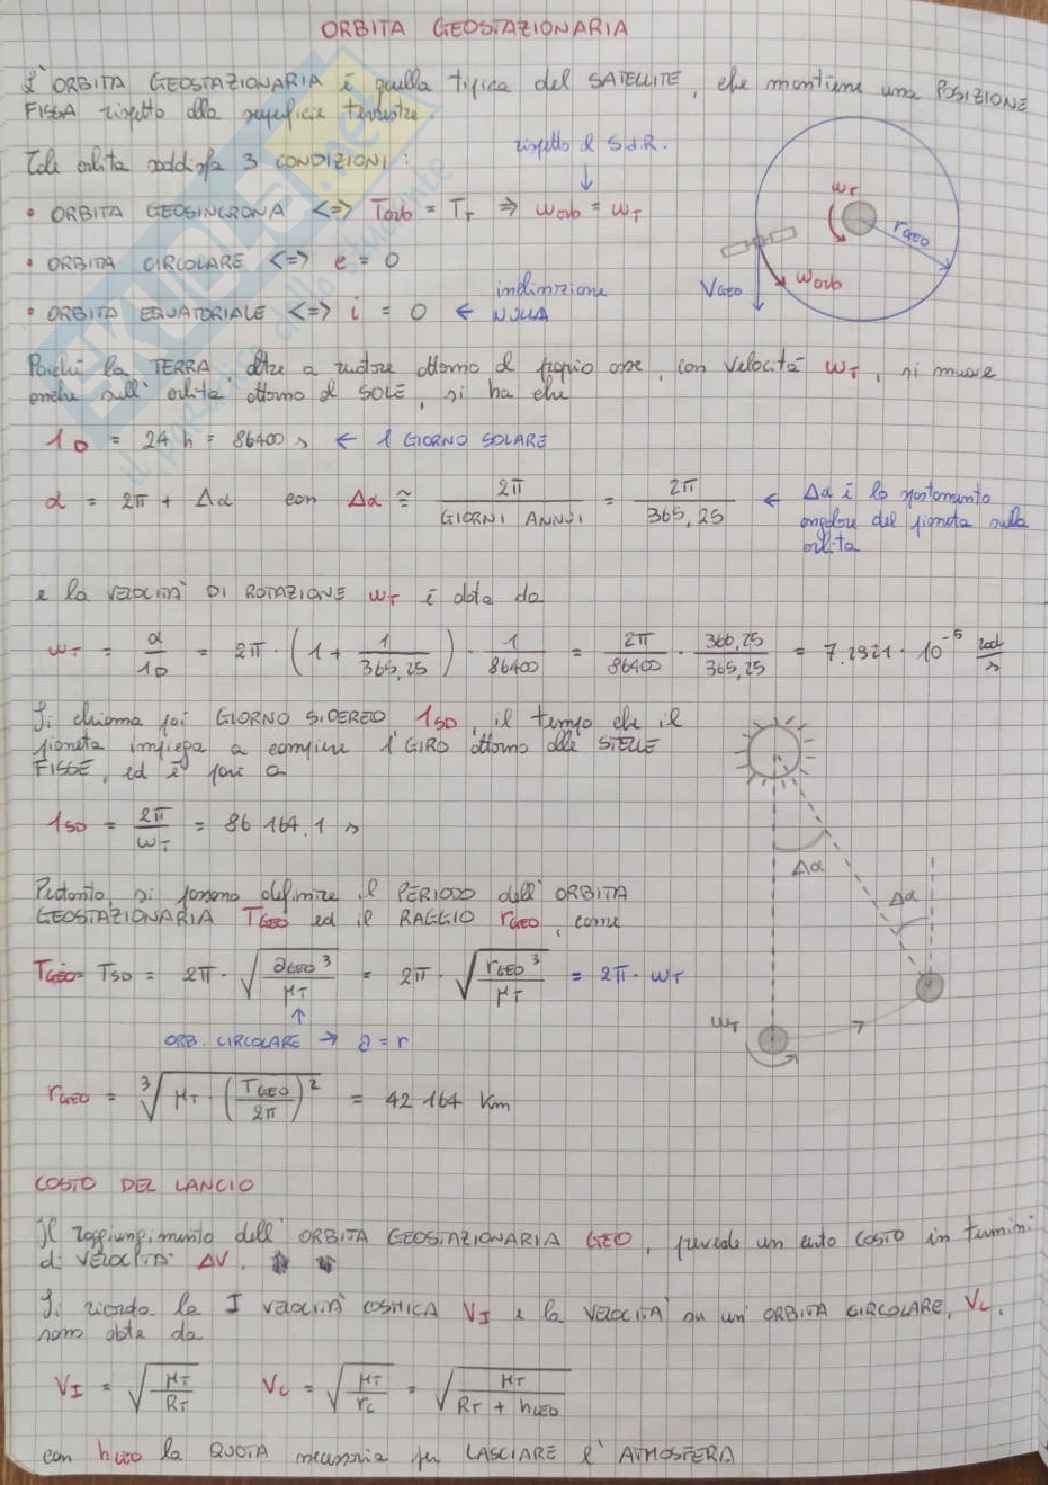 ORBITA GEOSTAZIONARIA
L'ORBITA GEOSTAZIONARIA è quella tipica del SATELLITE, che mantiene una POSIZIONE
FISSA rispetto alla superficie terrestre.
Tale orbita soddisfa 3 CONDIZIONI:
rispetto al S.d.R.
• ORBITA GEOSINCRONA <=> Torb = TT => ωorb = ωT
• ORBITA CIRCOLARE <=> e = 0
• ORBITA EQUATORIALE <=> i = 0 ← inclinazione NULLA
ωT
rGEO
VGEO
ωorb
Poiché la TERRA, oltre a ruotare attorno al proprio asse, con velocità ωT, si muove
anche sull'orbita attorno al SOLE, si ha che
1D = 24 h = 86400 s ← 1 GIORNO SOLARE
α = 2π + Δα con Δα ≅ 2π / GIORNI ANNUI = 2π / 365,25 ← Δα è lo spostamento
angolare del pianeta sulla
orbita
e la VELOCITÀ DI ROTAZIONE ωT è data da
ωT = α / 1D = 2π · (1 + 1 / 365,25) · 1 / 86400 = 2π / 86400 · 366,25 / 365,25 = 7.2921 · 10⁻⁵ rad / s
Si chiama poi GIORNO SIDEREO 1SD, il tempo che il
pianeta impiega a compiere 1 GIRO attorno alle STELLE
FISSE, ed è pari a
1SD = 2π / ωT = 86 164.1 s
Δα
Δα
ωT
Pertanto, si possono definire il PERIODO dell'ORBITA
GEOSTAZIONARIA TGEO ed il RAGGIO rGEO, come
TGEO = TSD = 2π · √(aGEO³ / μT) = 2π · √(rGEO³ / μT) = 2π · ωT
↑
ORB. CIRCOLARE → a = r
rGEO = ³√(μT · (TGEO / 2π)²) = 42 164 Km
COSTO DEL LANCIO
Il raggiungimento dell'ORBITA GEOSTAZIONARIA GEO, prevede un certo COSTO in termini
di VELOCITÀ ΔV.
Si ricorda la I VELOCITÀ COSMICA VI e la VELOCITÀ su un'ORBITA CIRCOLARE, VC,
sono date da
VI = √(μT / RT) VC = √(μT / rC) = √(μT / (RT + hLEO))
con hLEO la QUOTA necessaria per LASCIARE l'ATMOSFERA